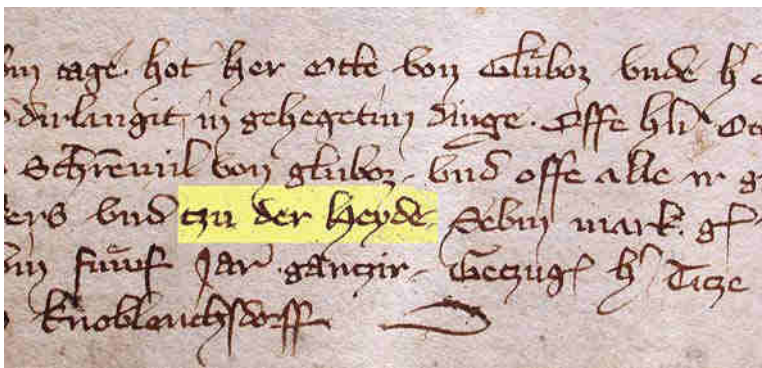 tage. hot her Otte von Gluboz vnde h
dirlangit in gehegetim dinge. Offe
Schremil von gluboz. vnd offe alle ir
vnd tzu der Heyde. Sebin mark. g
fumf Jar ganczir. Geczug h Ticze
Knoblauchsdorff